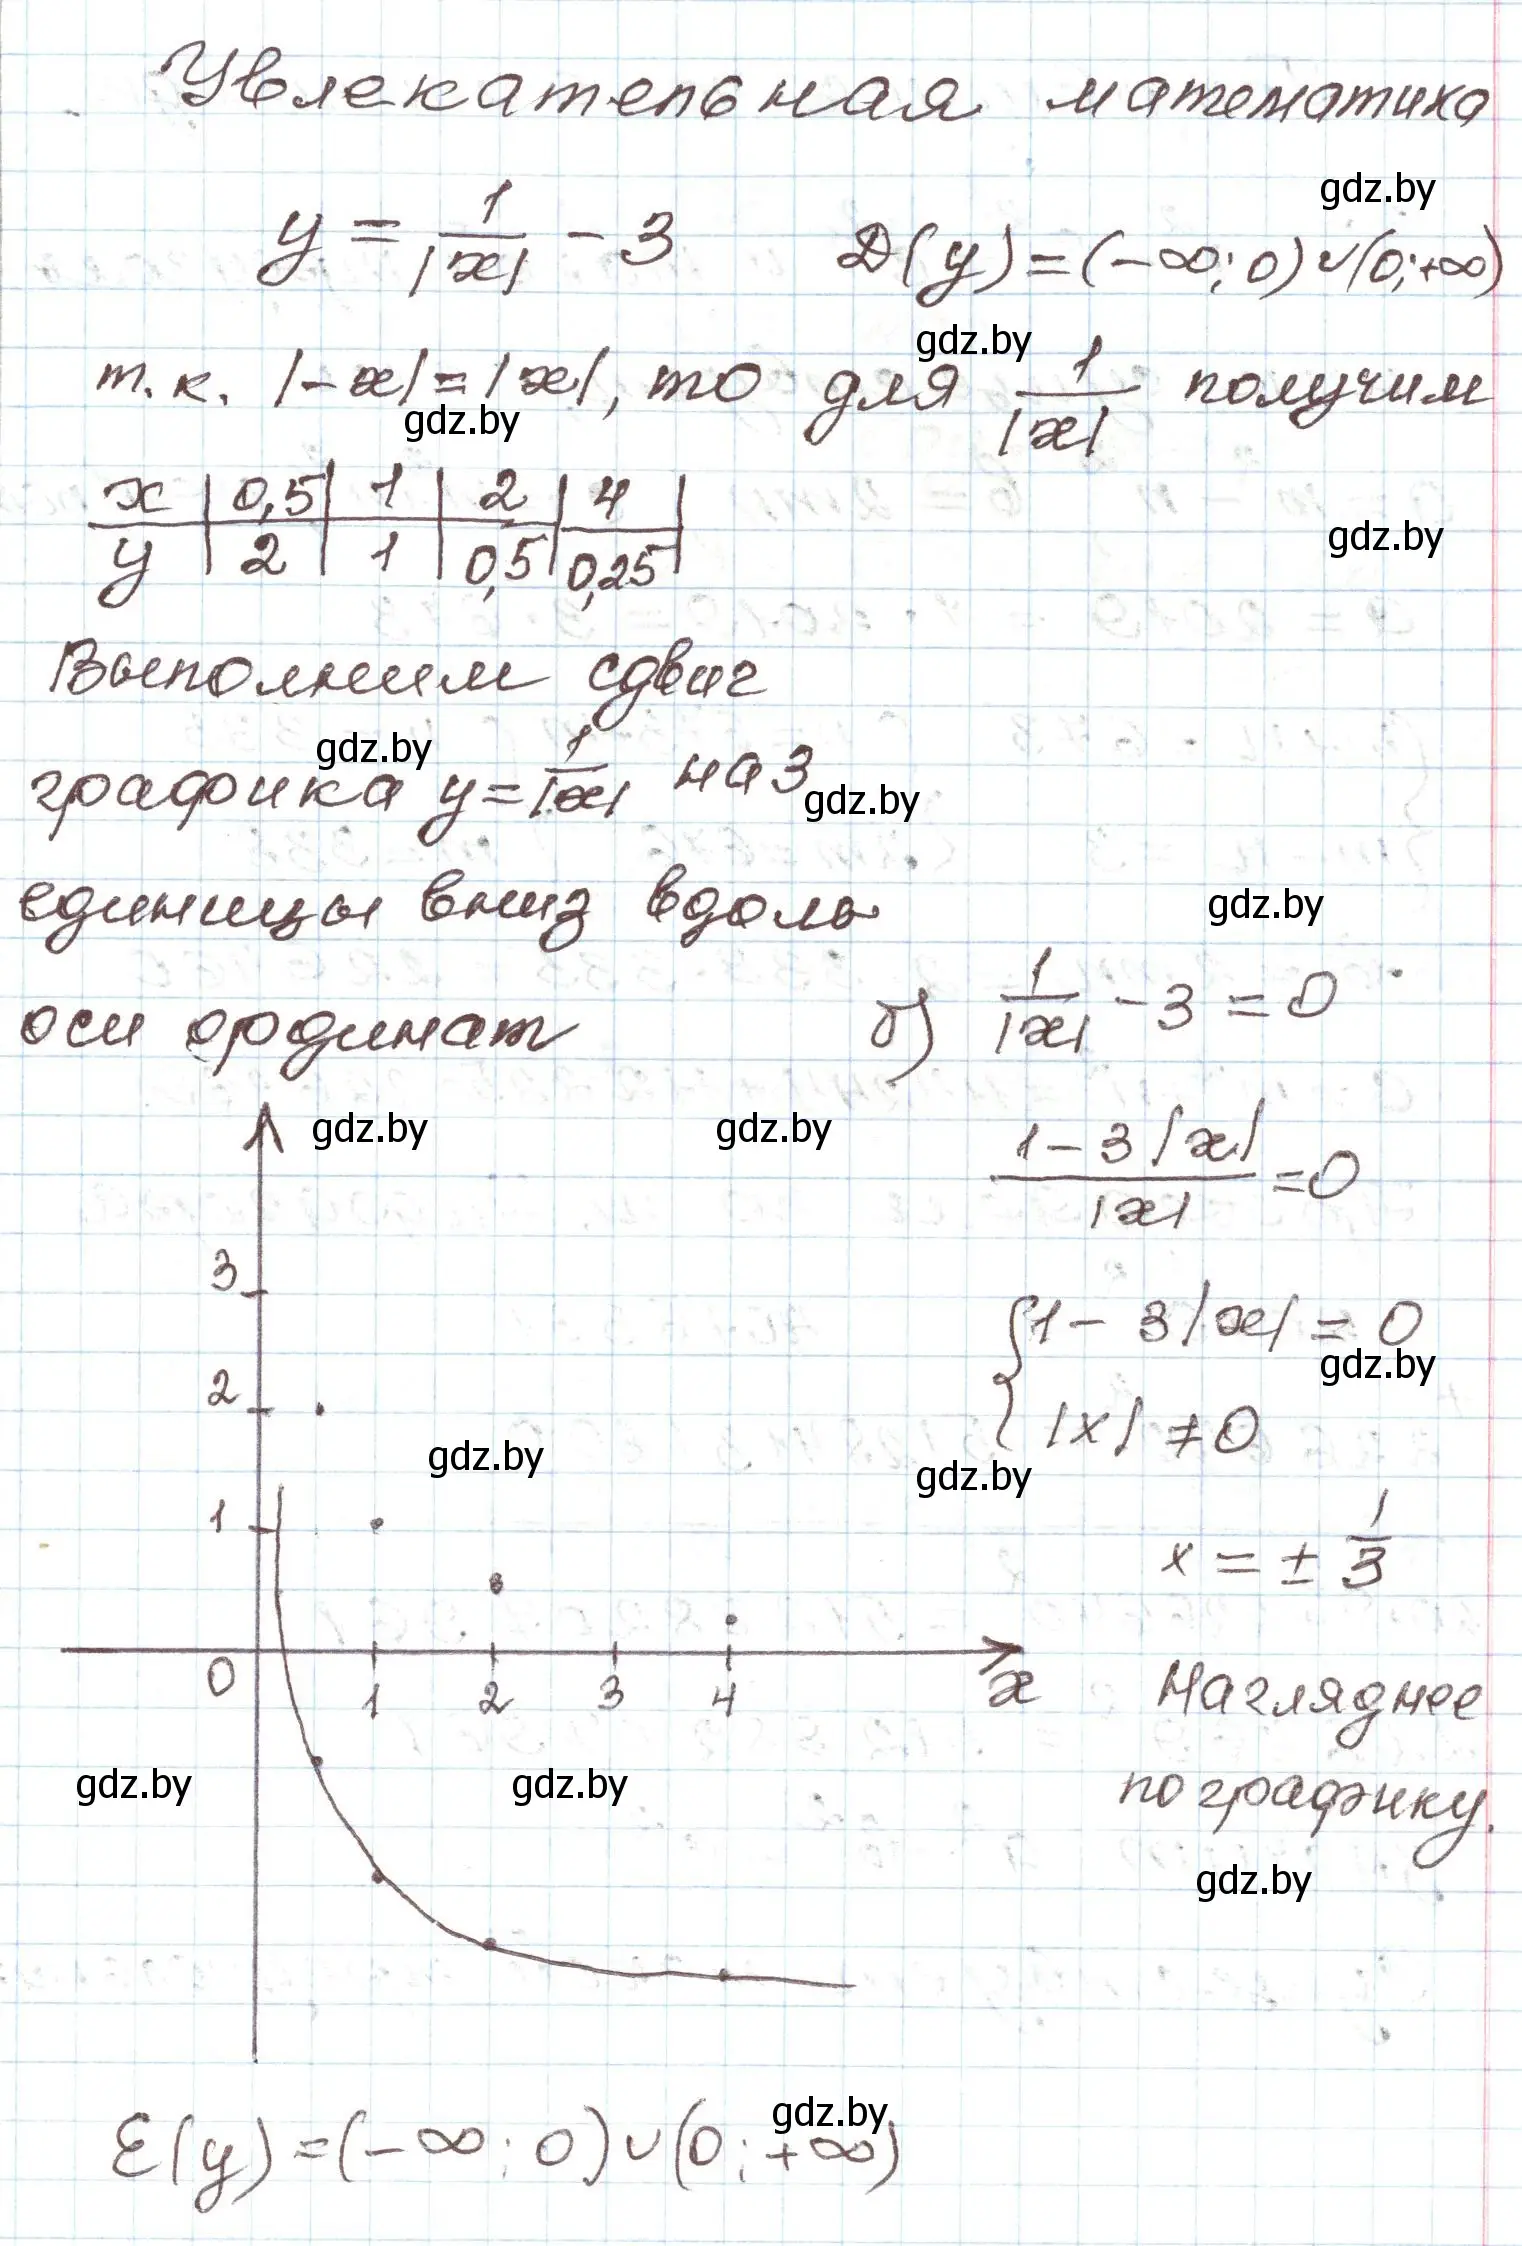 Увлекательная математика
gdz.by
y = 1/|x| - 3   D(y)=(-∞;0)∪(0;+∞)
gdz.by
т.к. |-x|=|x|, то для 1/|x| получим
gdz.by
x | 0,5 | 1 | 2 | 4 |
y | 2 | 1 | 0,5 | 0,25 |
gdz.by
Выполним сдвиг
gdz.by
графика y=1/|x| на 3
gdz.by
единицы вниз вдоль
gdz.by
оси ординат
б) 1/|x| - 3 = 0
gdz.by gdz.by
(1-3|x|)/|x| = 0
3
{1 - 3|x| = 0
gdz.by
2
|x| ≠ 0
gdz.by
gdz.by
1
x = ± 1/3
0 1 2 3 4 x
Нагляднее
gdz.by gdz.by
по графику.
gdz.by
gdz.by
E(y)=(-∞;0)∪(0;+∞)